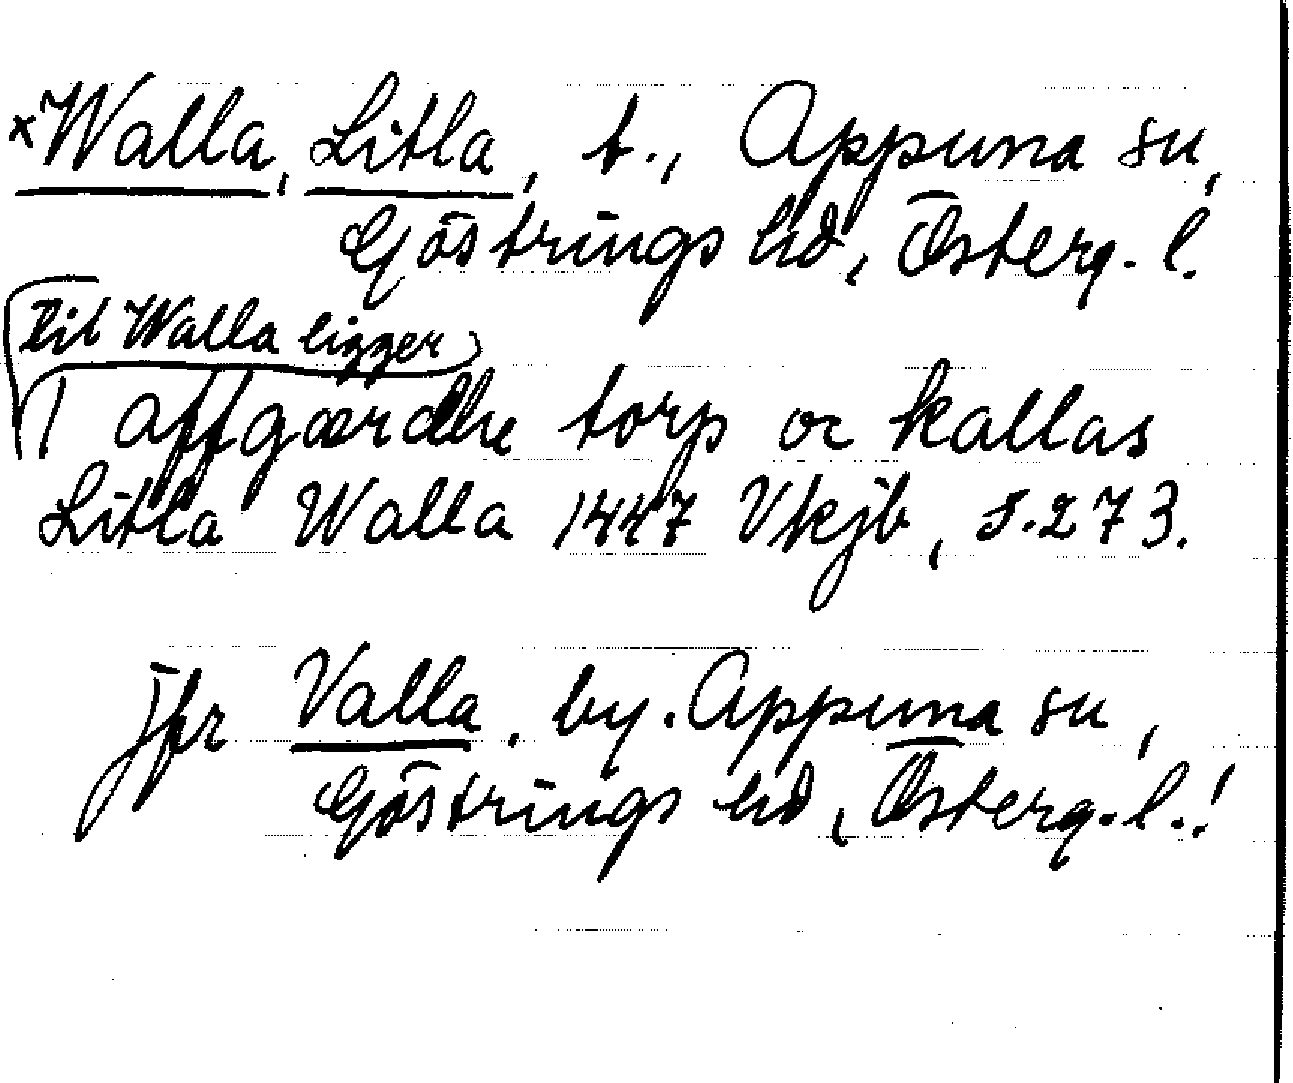 ×Walla, Litla, t., Appuna su,
Göstrings hd, Österg. l.
Til Walla ligger
1 affgærdhe torp oc kallas
Litla Walla 1447 Vkjb, s. 273.
Jfr Valla, by. Appuna su,
Göstrings hd, Österg. l.!